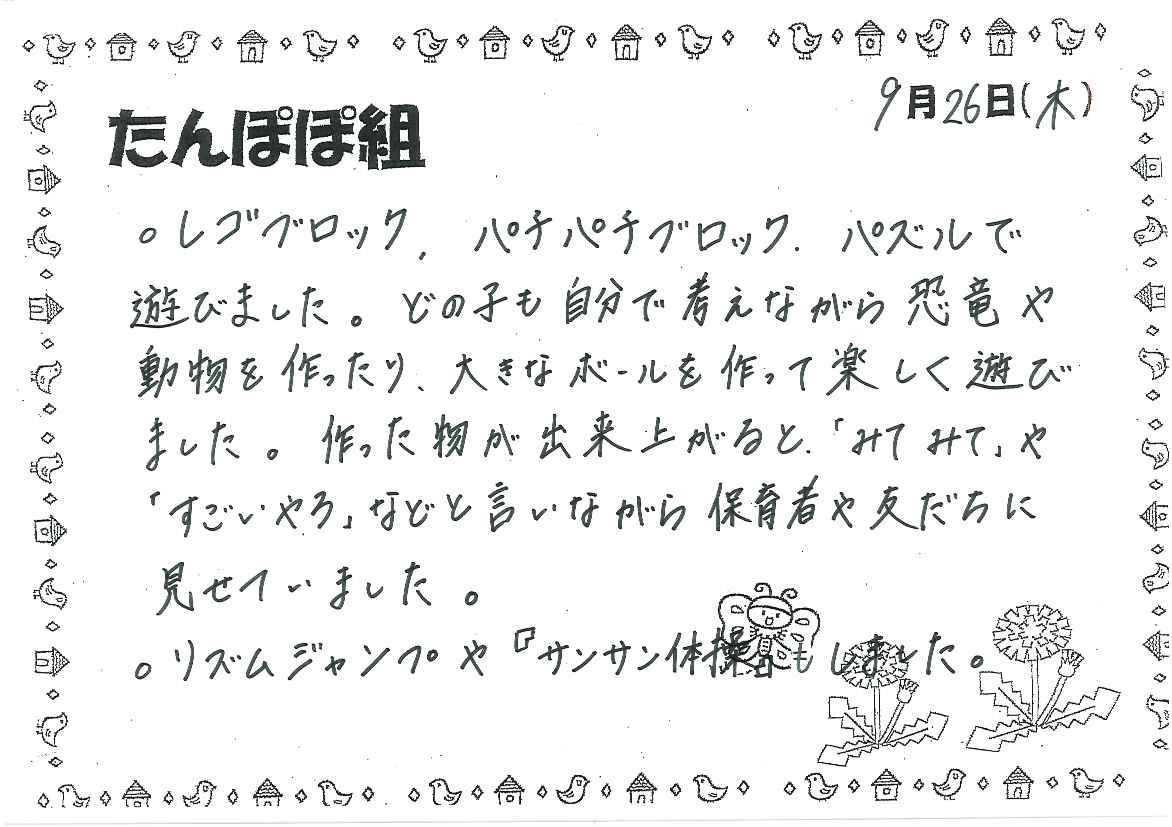 9月26日(木)
たんぽぽ組
○レゴブロック、パチパチブロック、パズルで
遊びました。どの子も自分で考えながら恐竜や
動物を作ったり、大きなボールを作って楽しく遊び
ました。作った物が出来上がると、「みてみて」や
「すごいやろ」などと言いながら保育者や友だちに
見せていました。
○リズムジャンプや『サンサン体操』もしました。